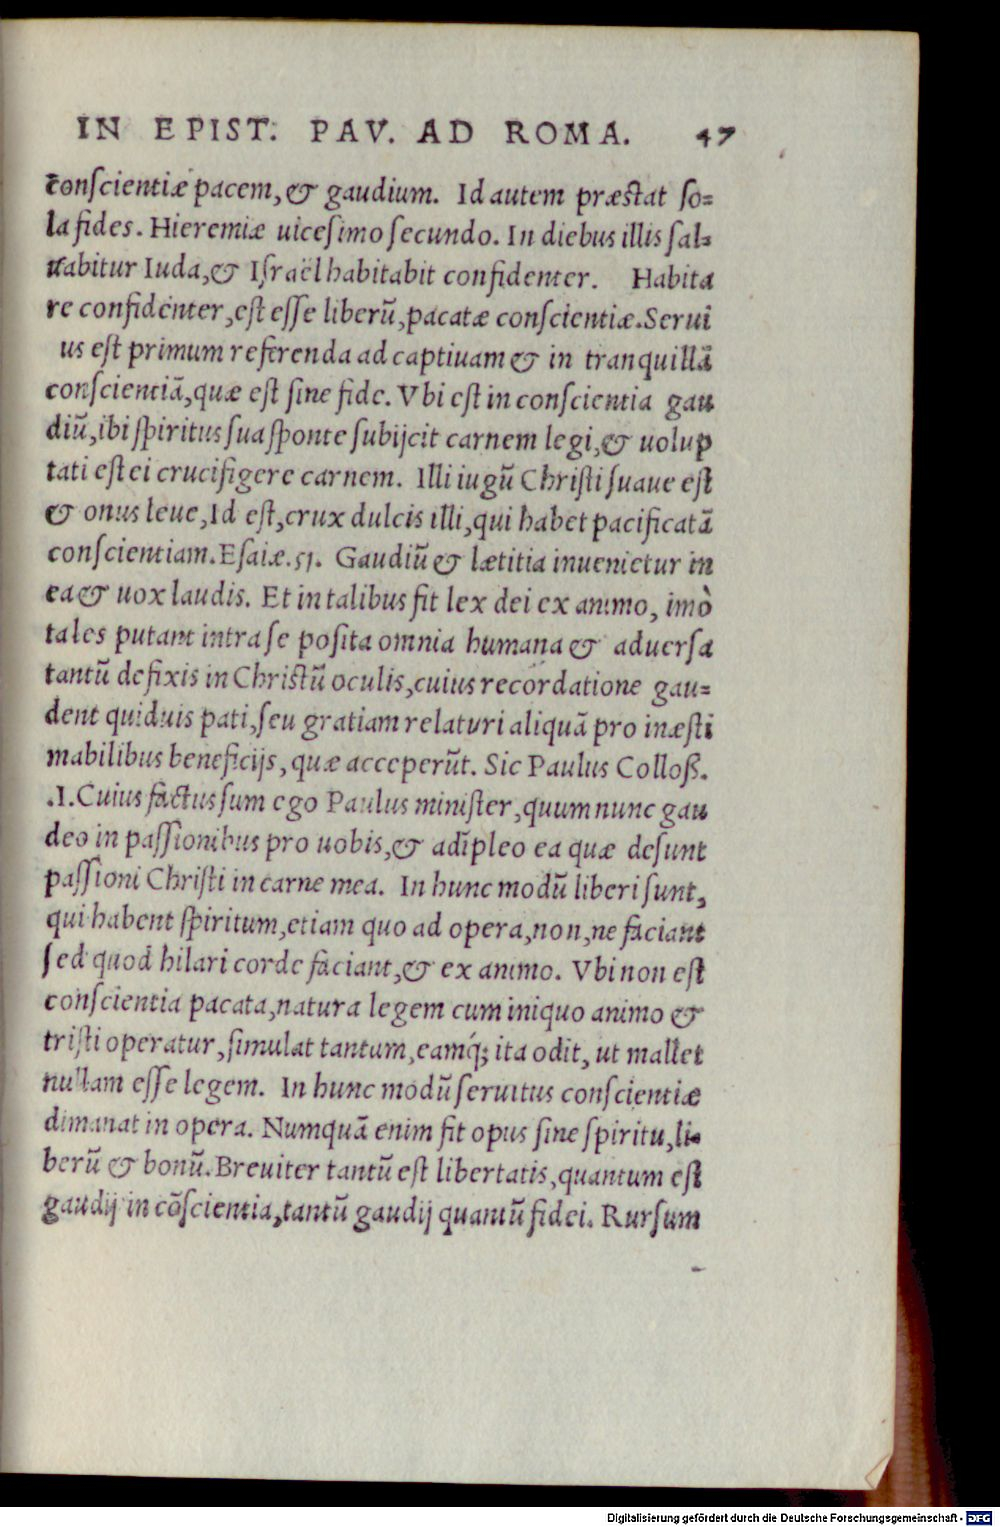 IN EPIST. PAV. AD ROMA. 47
conſcientiæ pacem, & gaudium. Id autem præstat ſo=
la fides. Hieremiæ uiceſimo ſecundo. In diebus illis ſal=
uabitur Iuda, & Iſraël habitabit confidenter. Habita
re confidenter, eſt eſſe liberū, pacatæ conſcientiæ. Serui
us eſt primum referenda ad captiuam & in tranquillā
conſcientiā, quæ eſt ſine fide. Vbi eſt in conſcientia gau
diū, ibi ſpiritus ſua ſponte ſubijcit carnem legi, & uolup
tati eſt ei crucifigere carnem. Illi iugū Chriſti ſuaue eſt
& onus leue, Id eſt, crux dulcis illi, qui habet pacificatā
conſcientiam. Eſaiæ. 51. Gaudiū & lætitia inuenietur in
ea & uox laudis. Et in talibus fit lex dei ex animo, imò
tales putant intra ſe poſita omnia humana & aduerſa
tantū defixis in Chriſtū oculis, cuius recordatione gau=
dent quiduis pati, ſeu gratiam relaturi aliquā pro inæſti
mabilibus beneficijs, quæ acceperūt. Sic Paulus Colloß.
.I. Cuius factus ſum ego Paulus miniſter, quum nunc gau
deo in paſſionibus pro uobis, & adīpleo ea quæ deſunt
paſſioni Chriſti in carne mea. In hunc modū liberi ſunt,
qui habent ſpiritum, etiam quo ad opera, non, ne faciant
ſed quod hilari corde faciant, & ex animo. Vbi non eſt
conſcientia pacata, natura legem cum iniquo animo &
triſti operatur, ſimulat tantum, eamq́; ita odit, ut mallet
nullam eſſe legem. In hunc modū ſeruitus conſcientiæ
dimanat in opera. Numquā enim fit opus ſine ſpiritu, li=
berū & bonū. Breuiter tantū eſt libertatis, quantum eſt
gaudij in cōſcientia, tantū gaudij quantū fidei. Rurſum
Digitalisierung gefördert durch die Deutsche Forschungsgemeinschaft - DFG